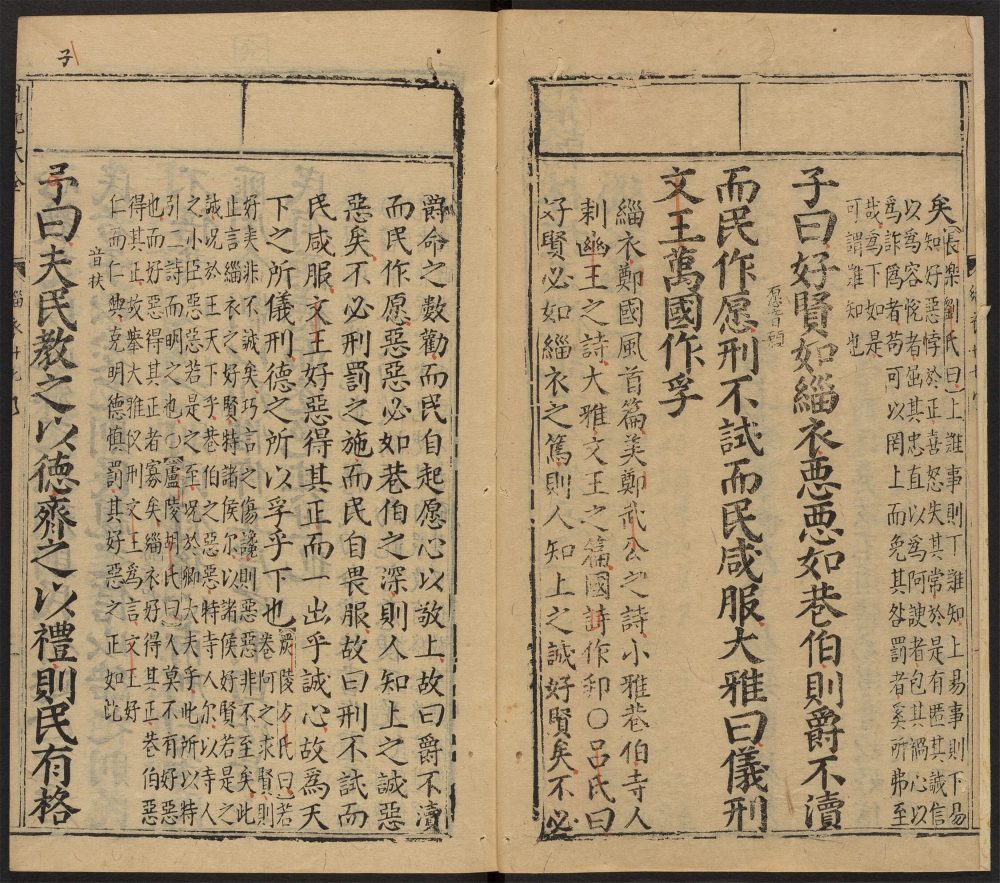 矣長樂劉氏曰上難事則下難知上易事則下易
知好惡悖於正喜怒失其常於是有匿其誠信
以為容悅者屈其忠直以為阿諛者包其禍心以
為詐偽者苟可以罔上而免其咎罰者奚所弗至
哉為下如是
可謂難知也
子曰好賢如緇衣惡惡如巷伯則爵不瀆
而民作愿刑不試而民咸服大雅曰儀刑
愿音願
文王萬國作孚
緇衣鄭國風首篇美鄭武公之詩小雅巷伯寺人
刺幽王之詩大雅文王之篇國詩作邦○呂氏曰
好賢必如緇衣之篤則人知上之誠好賢矣不必
子
爵命之數勸而民自起愿心以敬上故曰爵不瀆
而民作愿惡惡必如巷伯之深則人知上之誠惡
惡矣不必刑罰之施而民自畏服故曰刑不試而
民咸服文王好惡得其正而一出乎誠心故為天
下之所儀刑德之所以孚乎下也嚴陵方氏曰若
卷阿之求賢則
好美非不誠矣巧言之傷讒則惡惡非不至矣此
止言緇衣之好賢特諸侯爾以諸侯好賢若是之
誠況於王天下乎巷伯之惡惡特寺人爾以寺人
之小臣惡惡若是之至況於卿大夫乎此所以特
引二詩而明之也○廬陵胡氏曰人莫不有好惡
也而好惡得其正者寡矣緇衣好得其正巷伯惡
得其正故舉大雅儀刑文王為言文王好
仁而仁興克明德慎罰其好惡之正如此
音扶
子曰夫民教之以德齊之以禮則民有格